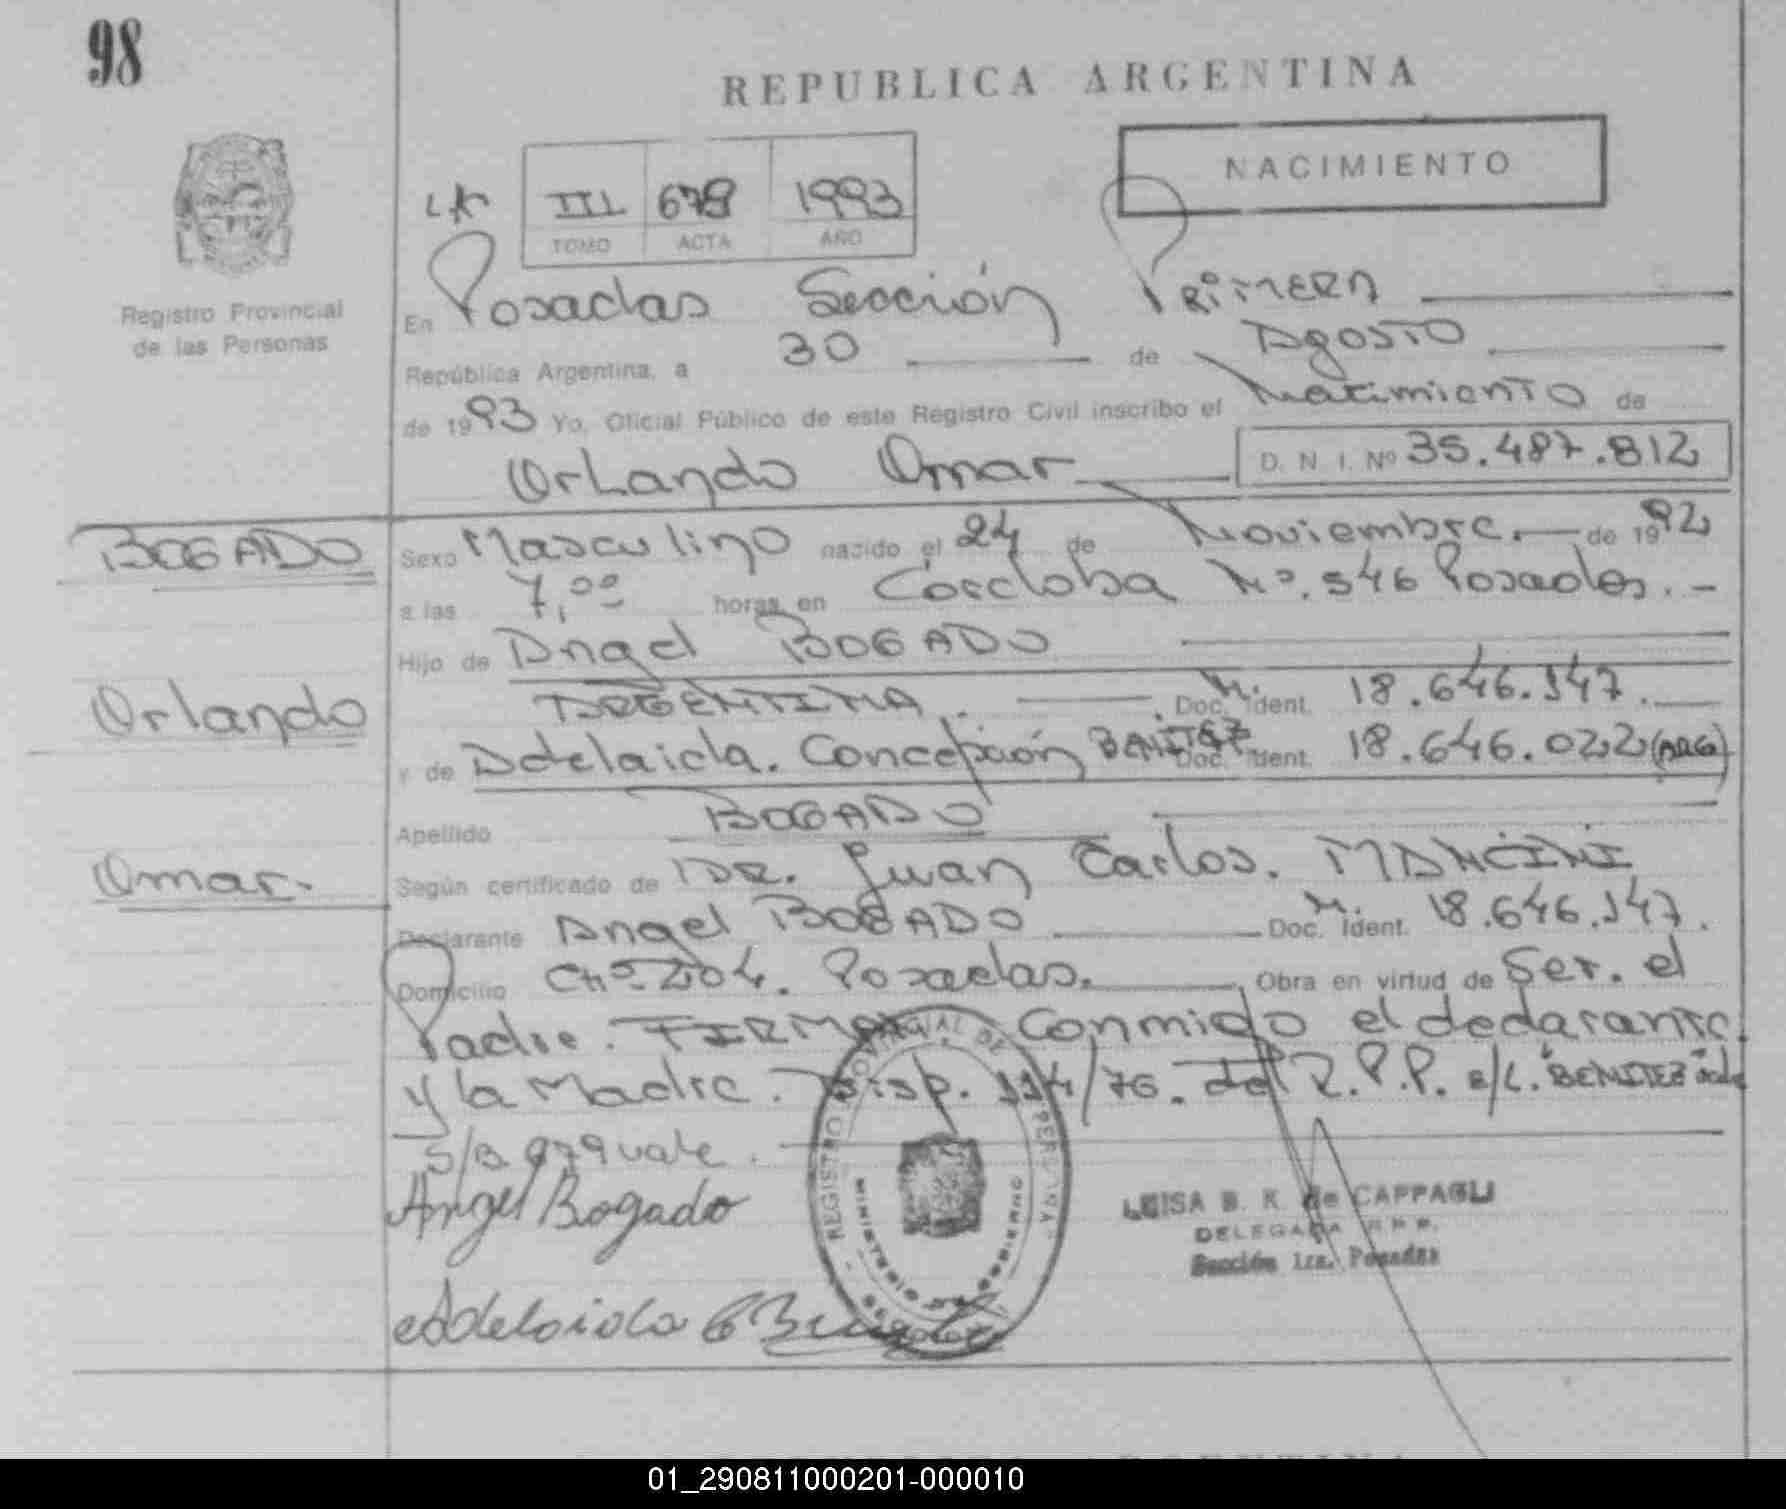 98
REPUBLICA ARGENTINA
NACIMIENTO
III 678 1993
TOMO ACTA AÑO
Registro Provincial
de las Personas
En Posadas Sección Primera
República Argentina, a 30 de Agosto
de 1993 Yo, Oficial Público de este Registro Civil inscribo el Nacimiento de
Orlando Omar D. N. I. Nº 35.487.812
BOGADO
Sexo Masculino nacido el 24 de Noviembre.- de 1992
a las 7,00 horas en Córdoba Nº. 546 Posadas.-
Hijo de Angel BOGADO
Orlando
ARGENTINA. Doc. Ident. 18.646.147.
y de Adelaida. Concepción BENITEZ Doc. Ident. 18.646.022 (ARG)
Apellido BOGADO
Omar.
Según certificado de DR. Juan Carlos. MANCINI
Declarante Angel BOGADO Doc. Ident. 18.646.147.
Domicilio Chº 204. Posadas. Obra en virtud de Ser. el
Padre. FIRMAN Conmigo el declarante
y la Madre. Disp. 114/76. del R.P.P. e/L. "BENITEZ" vale
S/B vale.
Angel Bogado
LUISA B. K. de CAPPAGLI
DELEGADA R.P.P.
Sección 1ra. Posadas
Adelaida C Benitez
REGISTRO PROVINCIAL DE PERSONAS
MINISTERIO DE GOBIERNO
01_290811000201-000010